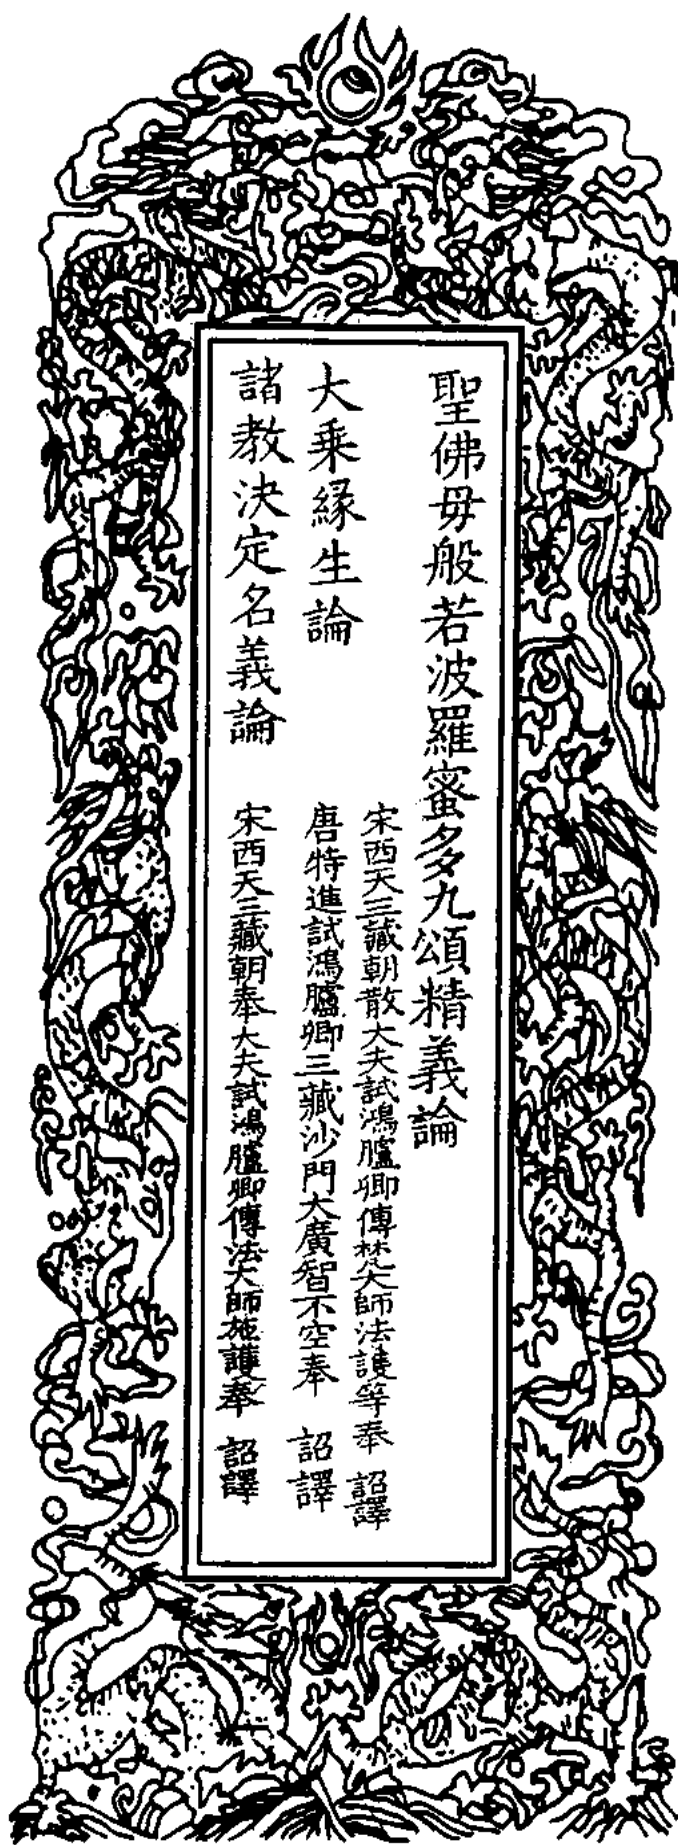 聖佛毋般若波羅蜜多九頌精義論
宋西天三藏朝散大夫試鴻臚卿傳梵大師法護等奉 詔譯
大乘緣生論
唐特進試鴻臚卿三藏沙門大廣智不空奉 詔譯
諸教決定名義論
宋西天三藏朝奉大夫試鴻臚卿傳法大師施護奉 詔譯